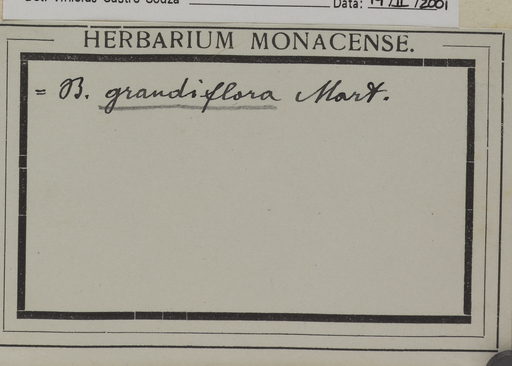 Det. Vinicius Castro Souza Data: 14/II/2001
HERBARIUM MONACENSE.
= B. grandiflora Mart.